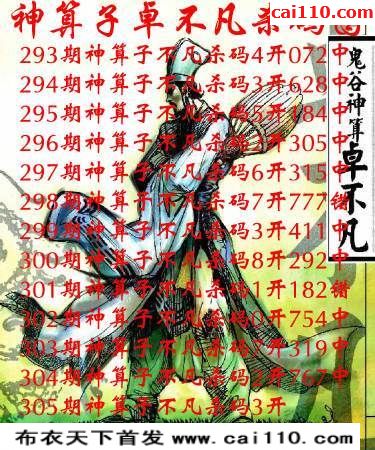 cai110.com
神算子卓不凡杀码图
293期神算子不凡杀码4开072中
294期神算子不凡杀码3开628中
295期神算子不凡杀码5开184中
296期神算子不凡杀码2开305中
297期神算子不凡杀码6开315中
298期神算子不凡杀码7开777错
299期神算子不凡杀码3开411中
300期神算子不凡杀码8开292中
301期神算子不凡杀码1开182错
302期神算子不凡杀码0开754中
303期神算子不凡杀码7开319中
304期神算子不凡杀码2开767中
305期神算子不凡杀码3开
鬼谷神算
卓不凡
布衣天下首发 www.cai110.com